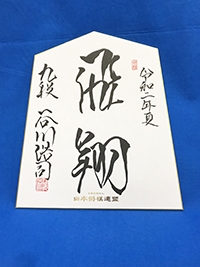 令和二年夏
飛翔
九段 谷川浩司
日本将棋連盟